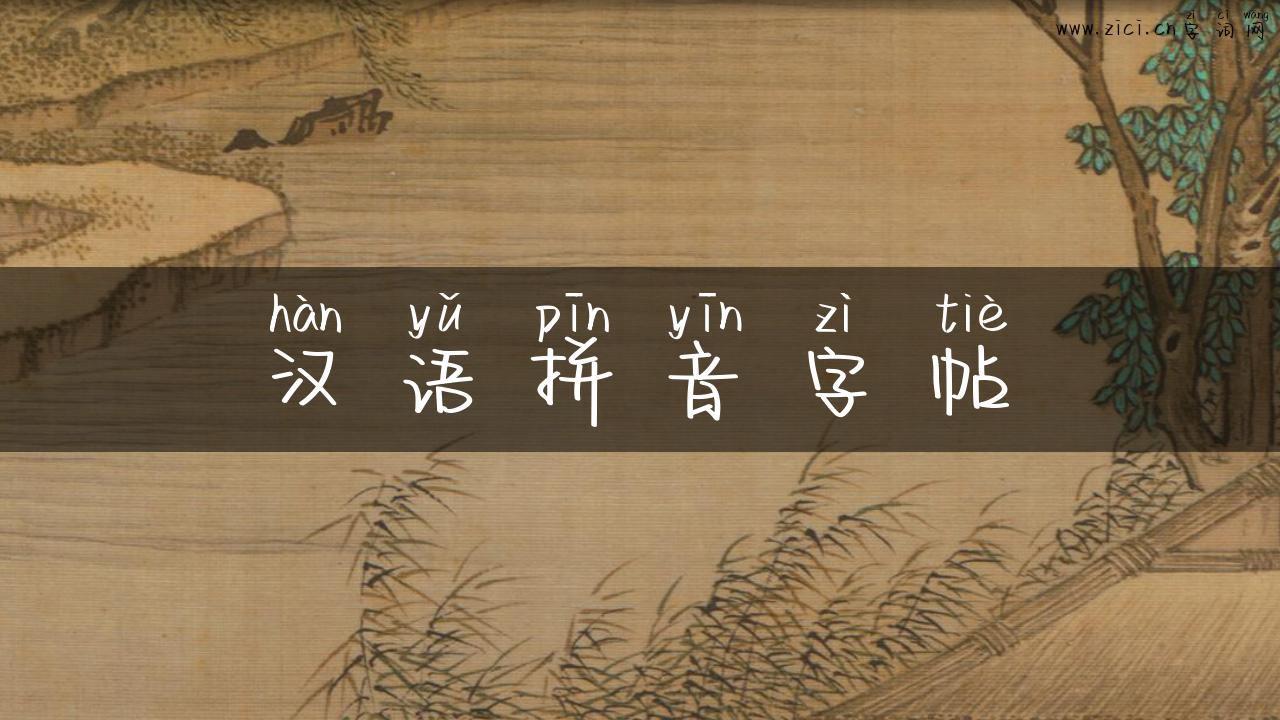 zì cí wǎng
www.zici.cn字词网
hàn yǔ pīn yīn zì tiè
汉语拼音字帖